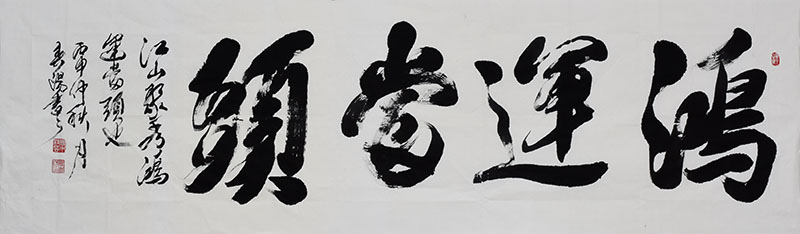 鴻運當頭
江山聚秀鴻
運當頭也
丙申仲秋月